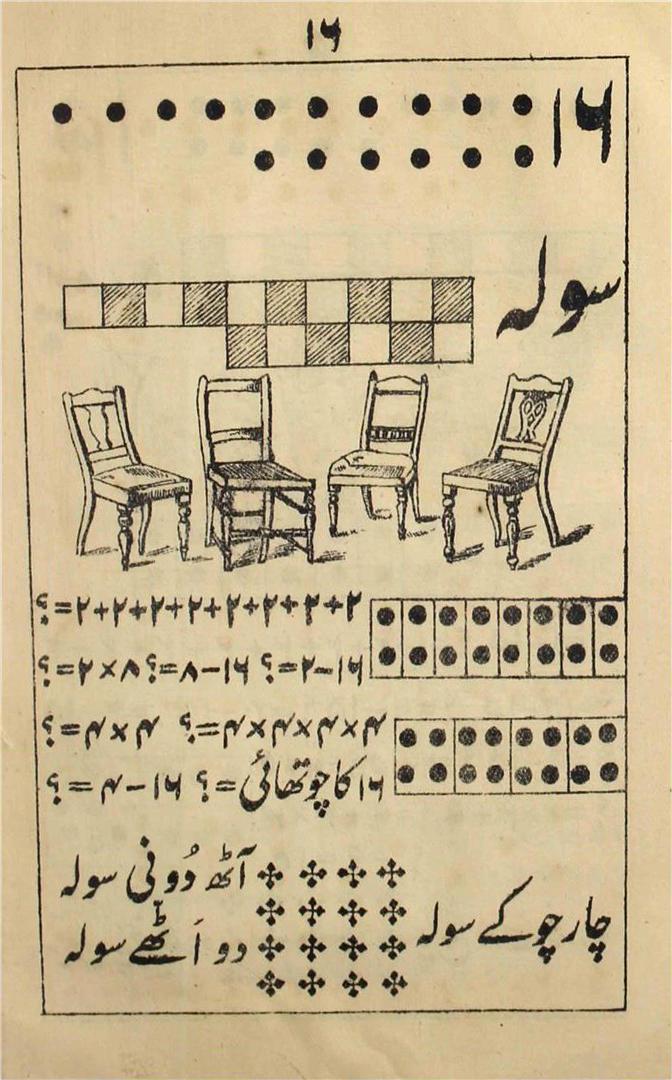 ۱۶
۱۶
سولہ
۲+۲+۲+۲+۲+۲+۲+۲=؟
۱۶−۲=؟ ۱۶−۸=؟ ۸×۲=؟
۴×۴×۴×۴=؟ ۴×۴=؟
۱۶ کا چوتھائی=؟ ۱۶−۴=؟
چار چوکے سولہ
آٹھ دُونی سولہ
دو اَٹھے سولہ